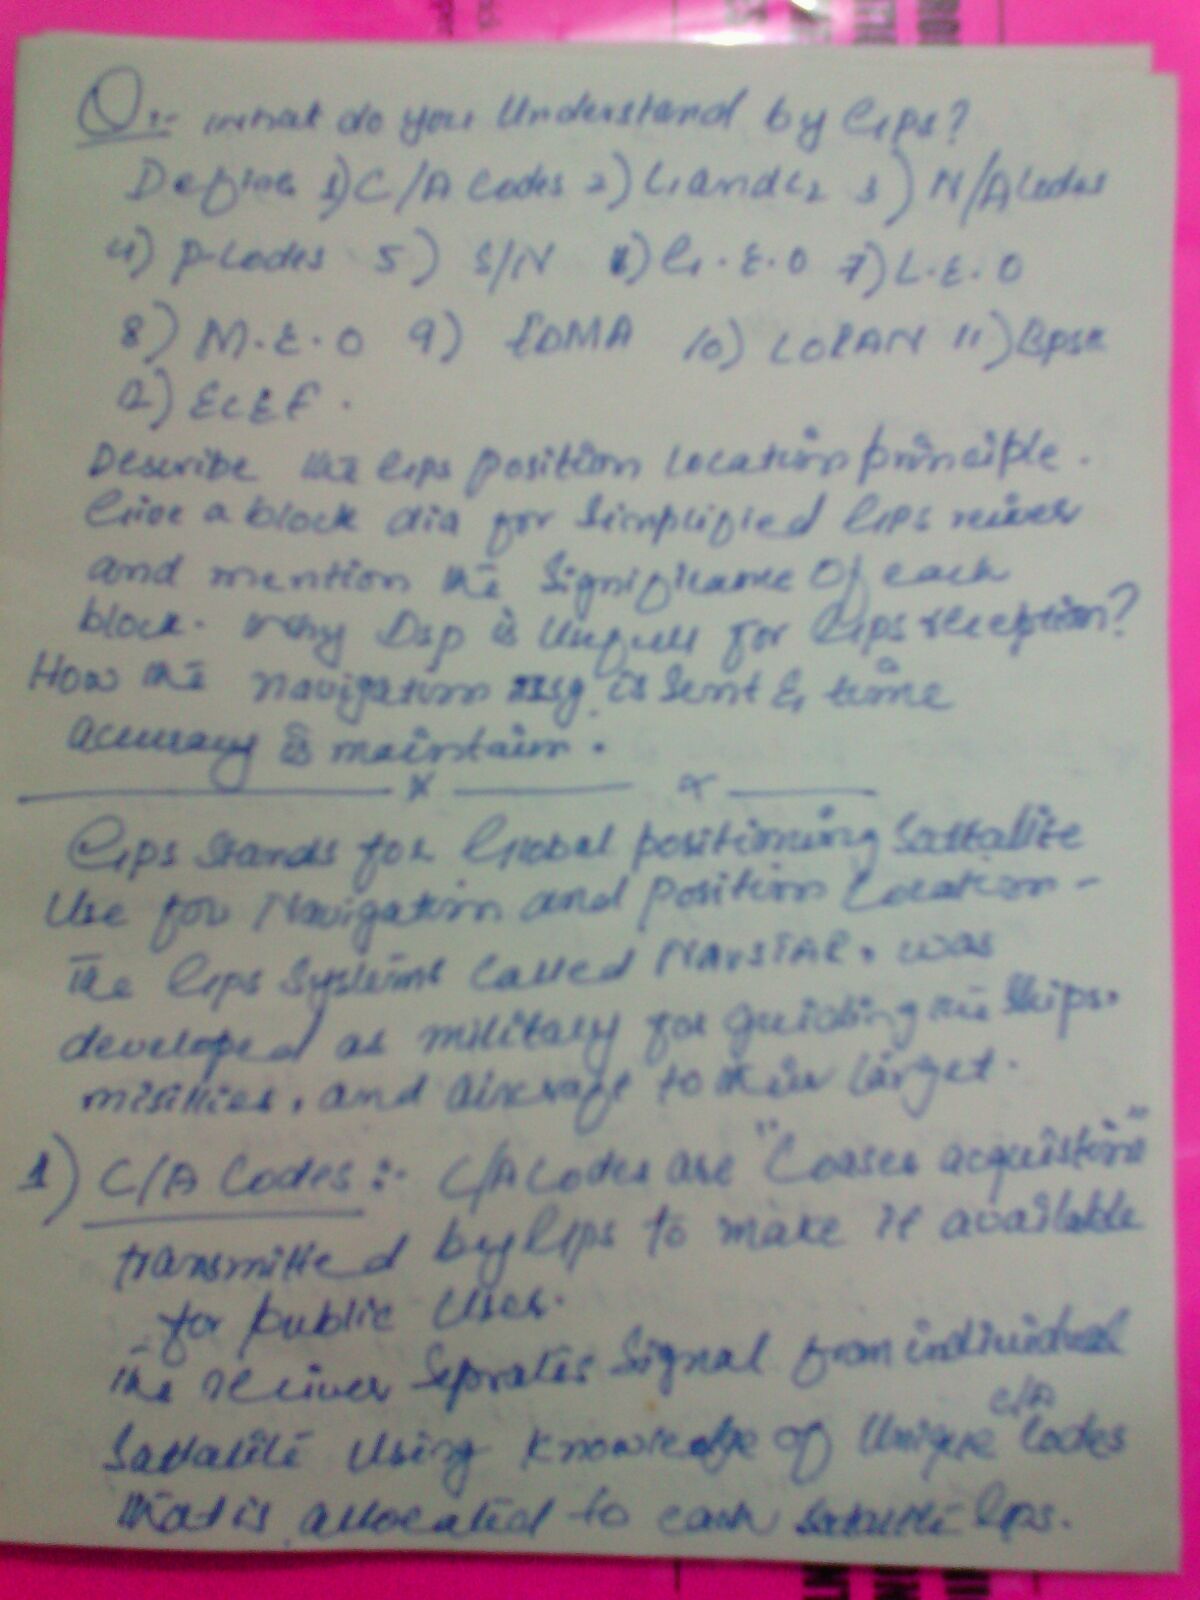 Q:- What do you Understand by Gps?
Define 1) C/A Codes 2) L1 and L2 3) N/A Codes
4) P-Codes 5) S/N 6) G.E.O 7) L.E.O
8) M.E.O 9) FDMA 10) LORAN 11)
12) ECEF.
Describe the Gps position location principle.
Give a block dia for Simplified GPS
and mention the Significance Of each
block. Why Dsp is for Gps reception?
How the navigation msg. is Sent & time
accuracy is maintain.
Gps stands for Global positioning Sattalite
Use for Navigation and position Location-
The Gps Systems Called NavSTAR, was
developed as military for guiding the Ships,
and Aircraft to their target.
1) C/A Codes :- C/A Codes are "Coaser
transmitted by Gps to make it available
for public Uses.
The Seprates Signal from individual
Sattalite Using Knowledge of Unique C/A Codes
that is allocated to each satellite Gps.